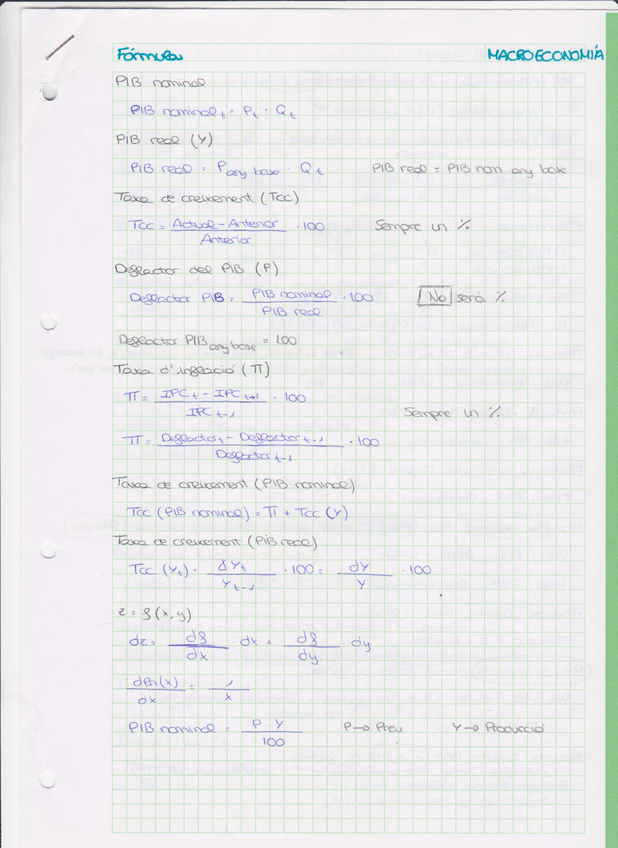 Fórmules MACROECONOMIA
PIB nominal
PIB nominal t = Pt · Qt
PIB real (Y)
PIB real = P any base · Qt PIB real = PIB nom any base
Taxa de creixement (Tcc)
Tcc = Actual - Anterior / Anterior · 100 Sempre un %
Deflactor del PIB (P)
Deflactor PIB = PIB nominal / PIB real · 100 No serà %
Deflactor PIB any base = 100
Taxa d'inflació (π)
π = IPC t - IPC t-1 / IPC t-1 · 100
Sempre un %
π = Deflactor t - Deflactor t-1 / Deflactor t-1 · 100
Taxa de creixement (PIB nominal)
Tcc (PIB nominal) = π + Tcc (Y)
Taxa de creixement (PIB real)
Tcc (Yt) · ΔYt / Yt-1 · 100 = dY / Y · 100
z = f(x,y)
dz = df / dx · dx + df / dy · dy
dln(x) / dx = 1 / x
PIB nominal = P · Y / 100 P → Preu Y → Producció